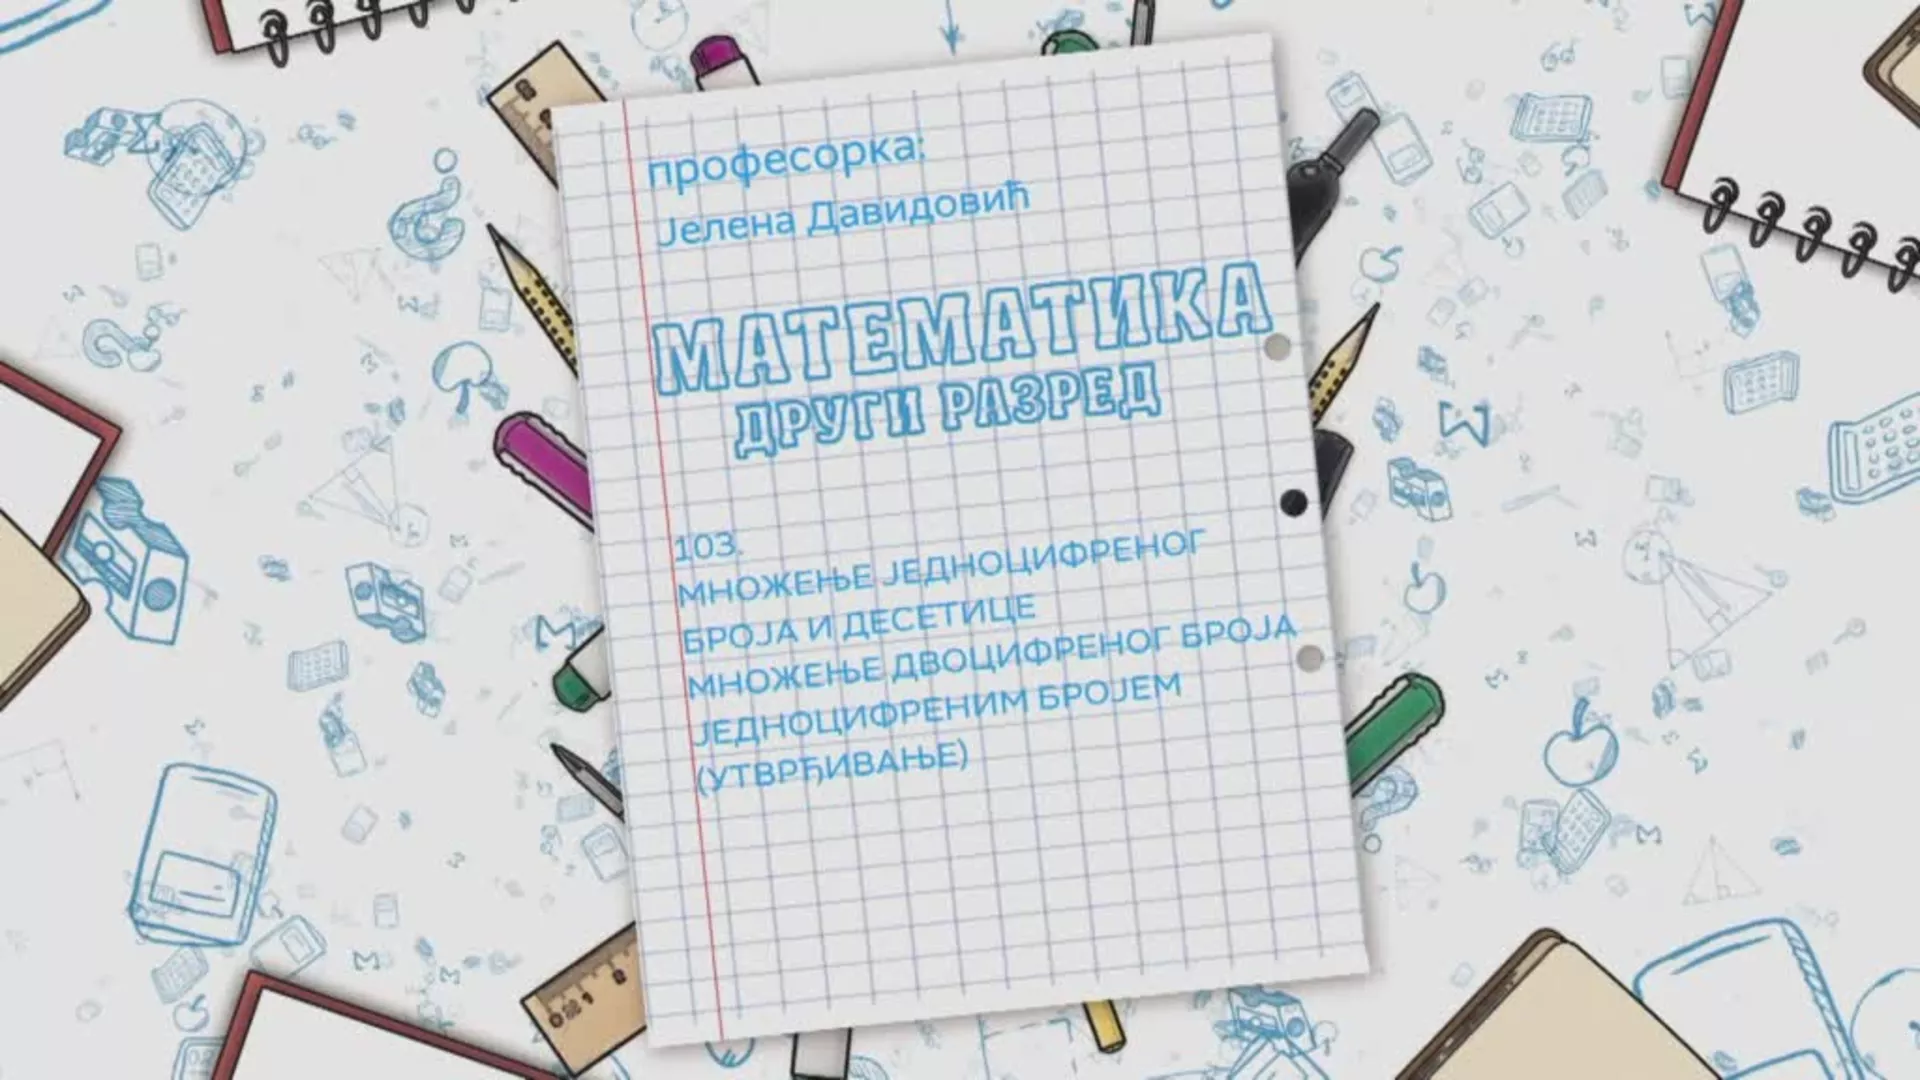 професорка:
Јелена Давидовић
МАТЕМАТИКА
ДРУГИ РАЗРЕД
103.
МНОЖЕЊЕ ЈЕДНОЦИФРЕНОГ
БРОЈА И ДЕСЕТИЦЕ
МНОЖЕЊЕ ДВОЦИФРЕНОГ БРОЈА
ЈЕДНОЦИФРЕНИМ БРОЈЕМ
(УТВРЂИВАЊЕ)